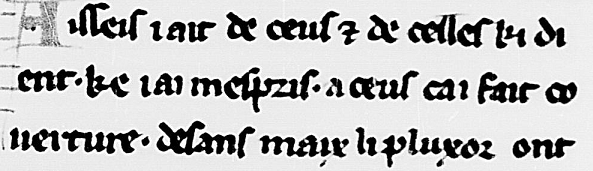 Asseis i ait de ceus ⁊ de celles ki di
ent · ke iai mespris · a ceus cai fait co
uerture · desans maix li pluxor ont